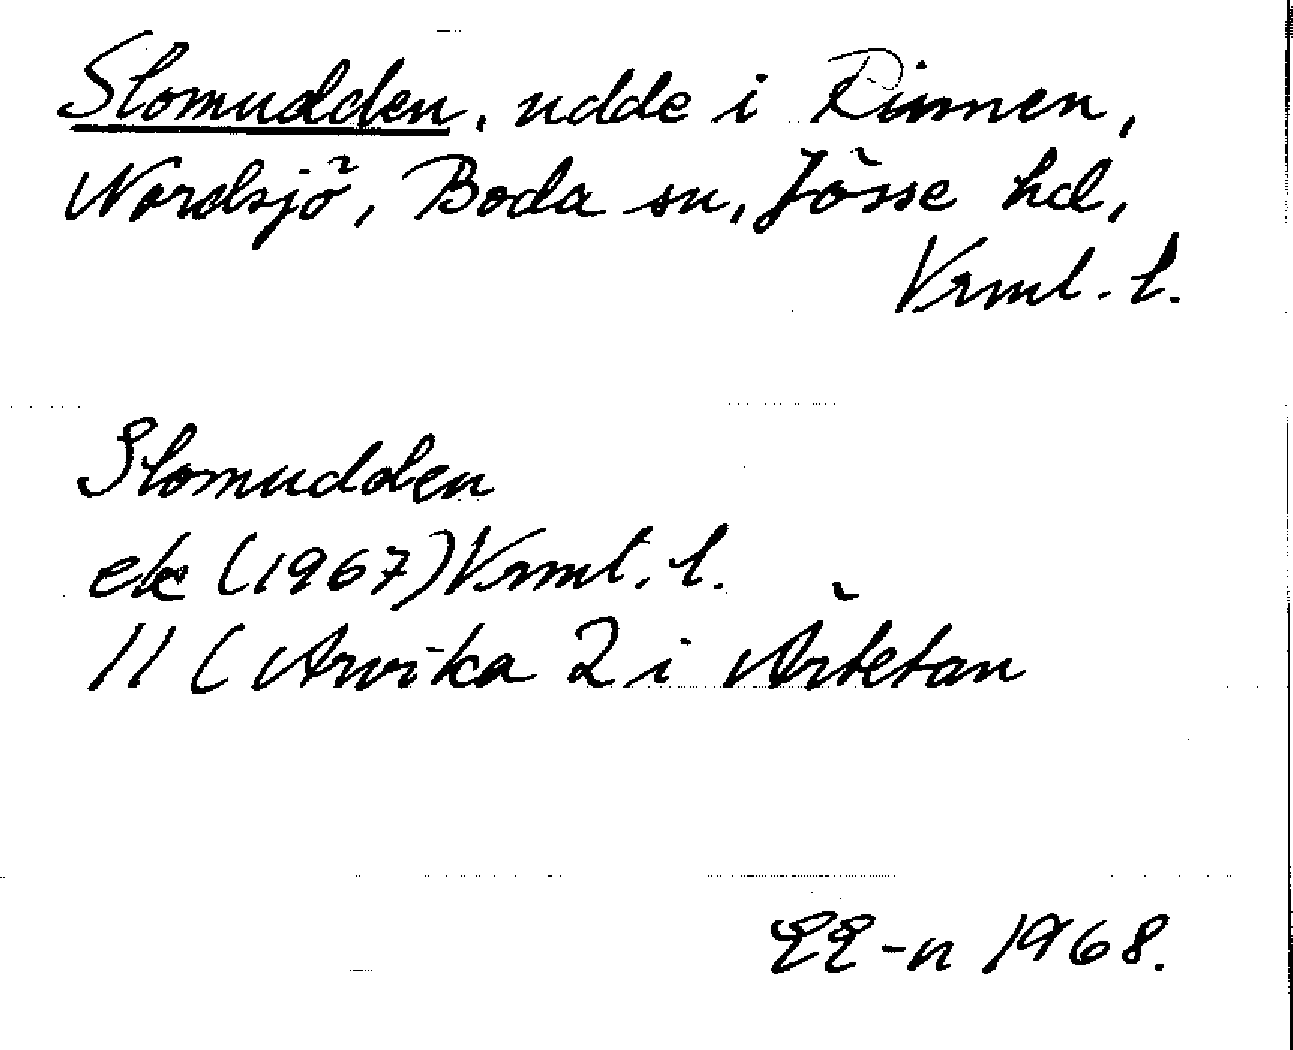 Slomudden, udde i Rinnen,
Nordsjö, Boda sn, Jösse hd,
Vrml. l.
Slomudden
ek (1967) Vrml. l.
11 C Arvika 2 i Årbetan
EE-n 1968.